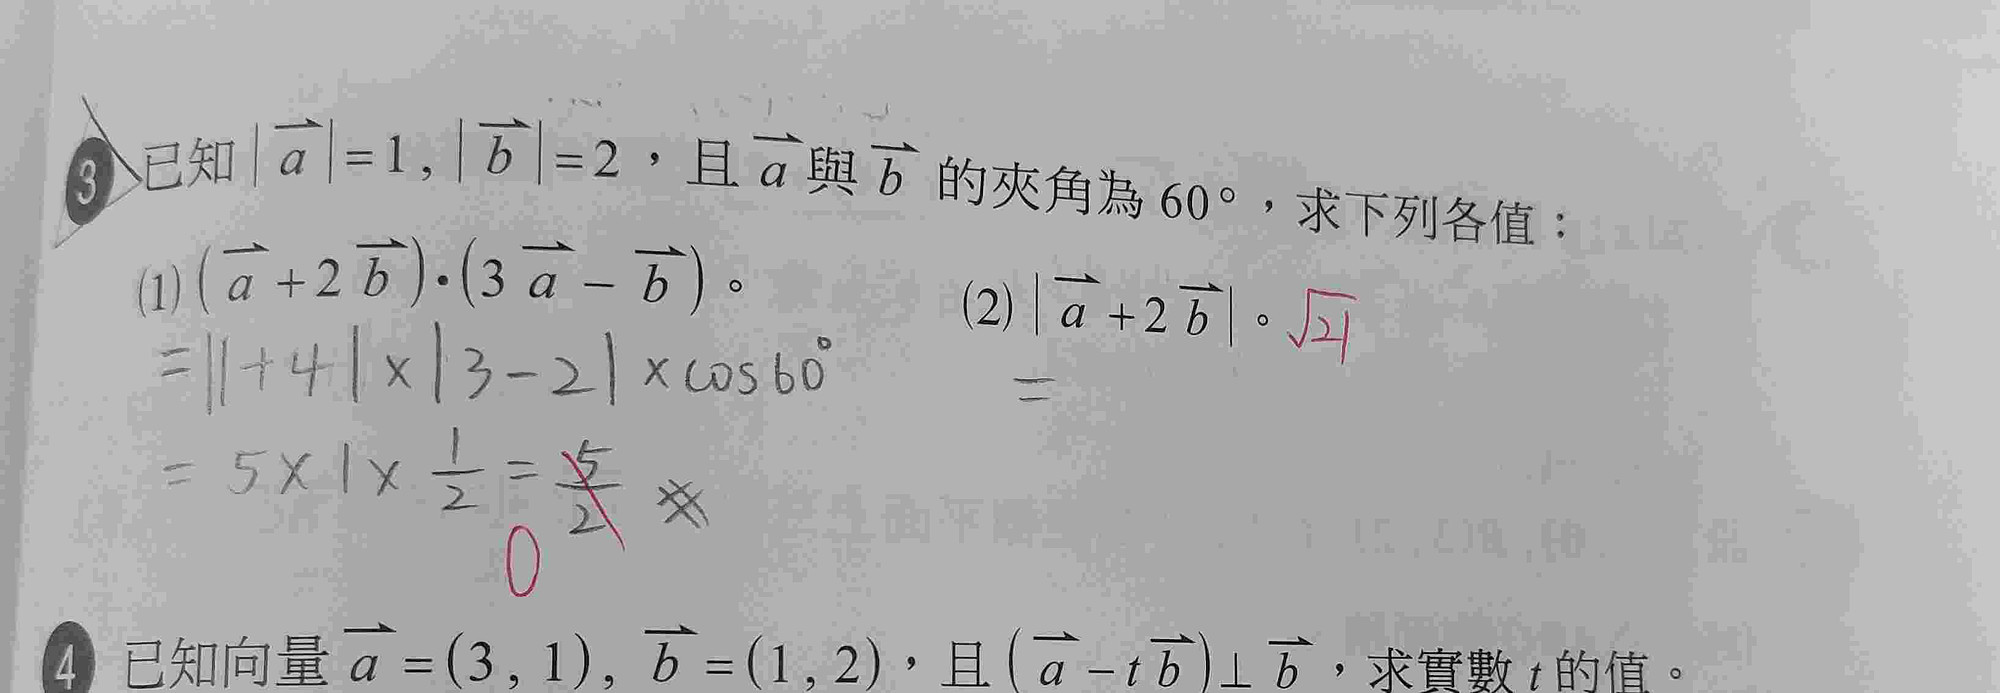 3 已知|a⃗|=1, |b⃗|=2，且 a⃗ 與 b⃗ 的夾角為 60°，求下列各值：
(1) (a⃗+2b⃗)·(3a⃗−b⃗)。
=|1+4|×|3-2|×cos60°
= 5×1×1/2 = 5/2 ※
0
(2) |a⃗+2b⃗|。 √21
=
4 已知向量 a⃗=(3, 1), b⃗=(1, 2)，且 (a⃗−tb⃗)⊥b⃗，求實數 t 的值。